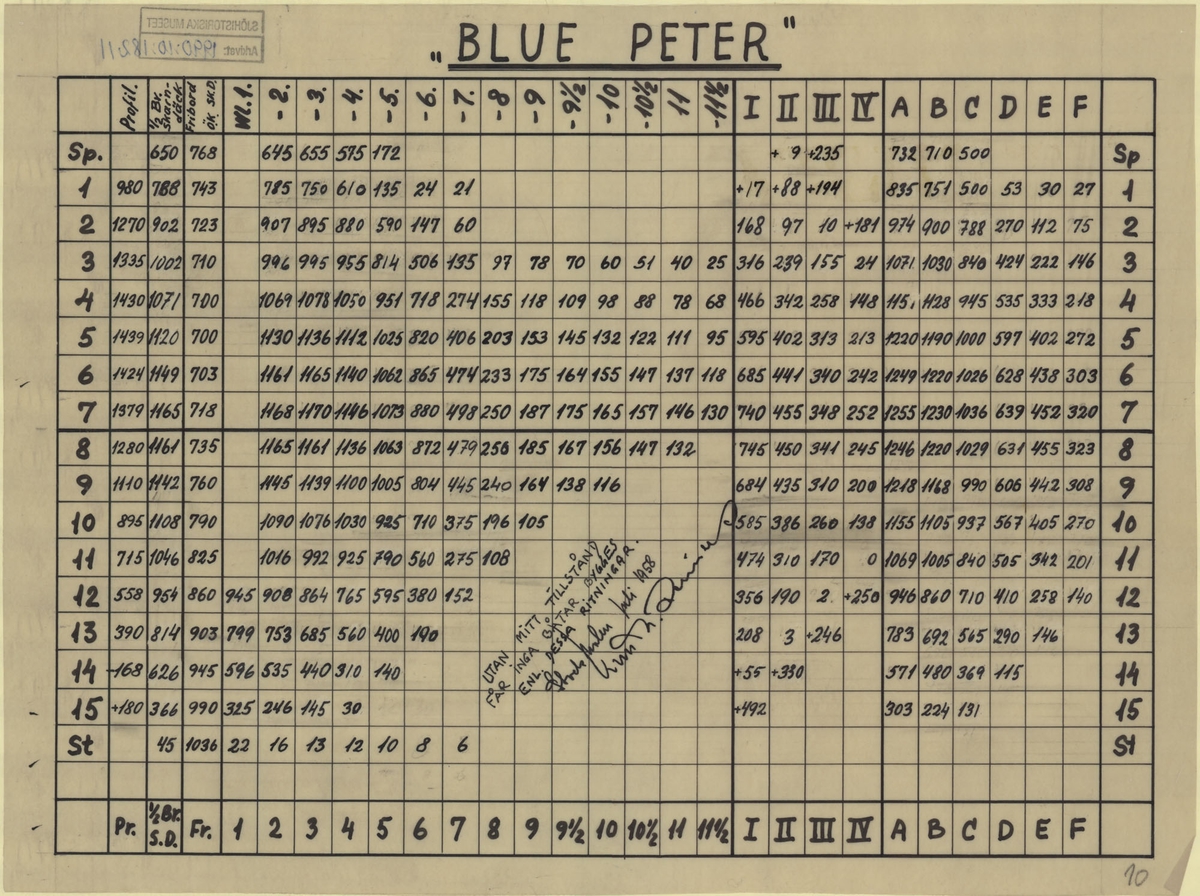 SJÖHISTORISKA MUSEET
Arkivet: 1990:10:182:11
"BLUE PETER"
Profil. ½ Br. skarndäck Fribord ök. sk.D. Wl.1. -2. -3. -4. -5. -6. -7. -8 -9 -9½ -10 -10½ 11 -11½ I II III IV A B C D E F
Sp. 650 768 645 655 575 172 + 9 +235 732 710 500 Sp
1 980 788 743 785 750 610 135 24 21 +17 +88 +194 835 751 500 53 30 27 1
2 1270 902 723 907 895 880 590 147 60 168 97 10 +181 974 900 788 270 112 75 2
3 1335 1002 710 996 995 955 814 506 135 97 78 70 60 51 40 25 316 239 155 24 1071 1030 840 424 222 146 3
4 1430 1071 700 1069 1078 1050 951 718 274 155 118 109 98 88 78 68 466 342 258 148 1151 1128 945 535 333 218 4
5 1439 1120 700 1130 1136 1112 1025 820 406 203 153 145 132 122 111 95 595 402 313 213 1220 1190 1000 597 402 272 5
6 1424 1149 703 1161 1165 1140 1062 865 474 233 175 164 155 147 137 118 685 441 340 242 1249 1220 1026 628 438 303 6
7 1379 1165 718 1168 1170 1146 1073 880 498 250 187 175 165 157 146 130 740 455 348 252 1255 1230 1036 639 452 320 7
8 1280 1161 735 1165 1161 1136 1063 872 479 250 185 167 156 147 132 745 450 341 245 1246 1220 1029 631 455 323 8
9 1110 1142 760 1145 1139 1100 1005 804 445 240 164 138 116 684 435 310 200 1218 1168 990 606 442 308 9
10 895 1108 790 1090 1076 1030 925 710 375 196 105 585 386 260 138 1155 1105 937 567 405 270 10
11 715 1046 825 1016 992 925 790 560 275 108 474 310 170 0 1069 1005 840 505 342 201 11
12 558 954 860 945 908 864 765 595 380 152 356 190 2. +250 946 860 710 410 258 140 12
13 390 814 903 799 753 685 560 400 190 208 3 +246 783 692 565 290 146 13
14 -168 626 945 596 535 440 310 140 +55 +330 571 480 369 115 14
15 +180 366 990 325 246 145 30 +492 303 224 131 15
St 45 1036 22 16 13 12 10 8 6 St
Pr. ½ Br. S.D. Fr. 1 2 3 4 5 6 7 8 9 9½ 10 10½ 11 11½ I II III IV A B C D E F
UTAN MITT TILLSTÅND
FÅR INGA BÅTAR BYGGES
ENL. DESSA RITNINGAR.
juli 1958
10